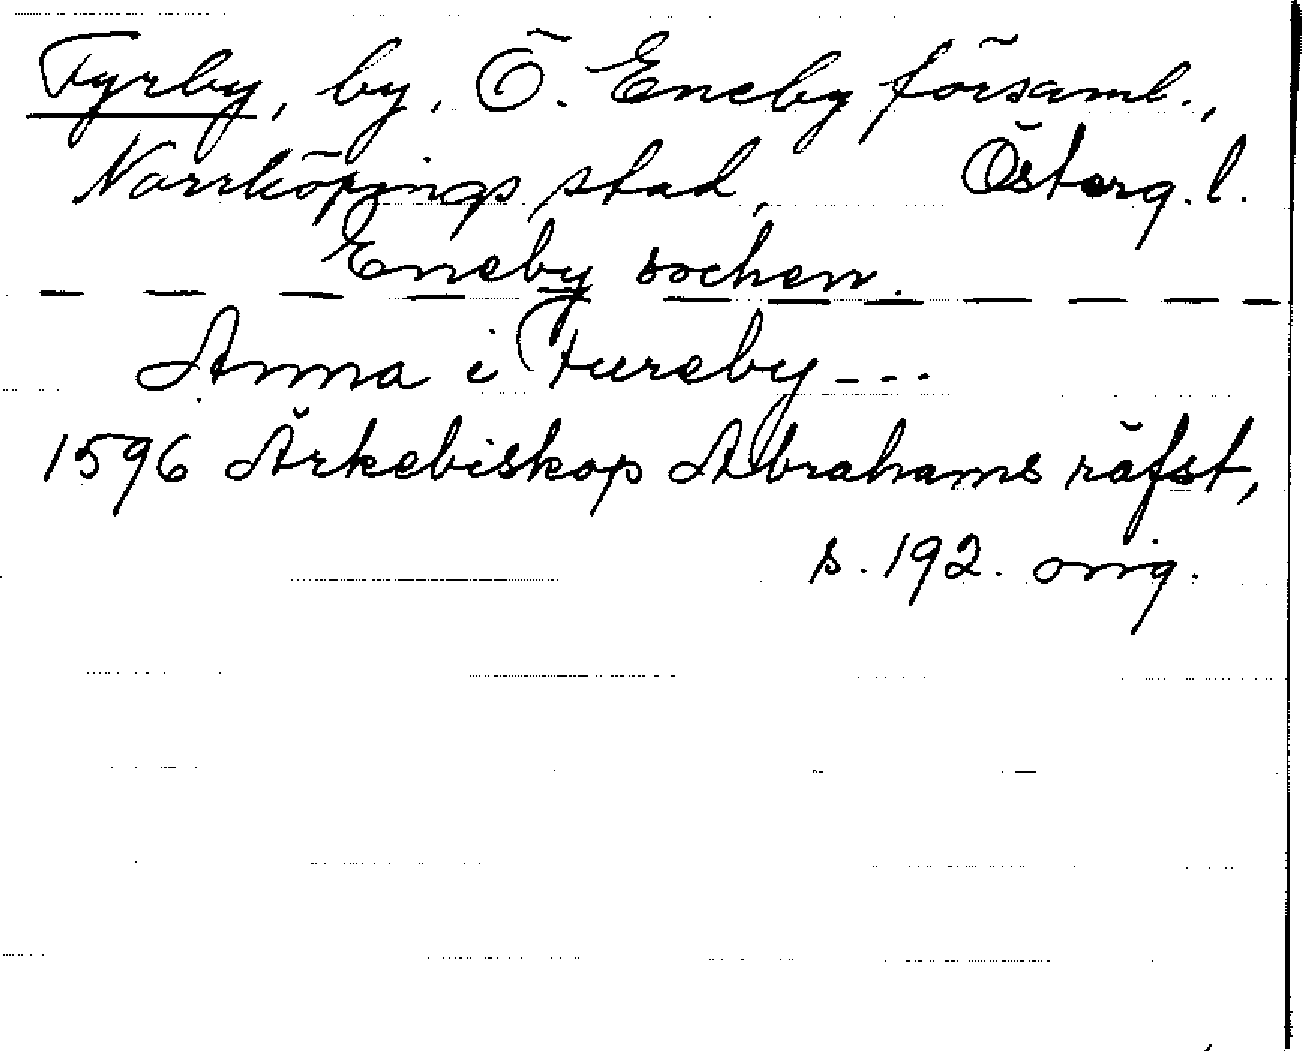 Fyrby, by, Ö. Eneby församl.,
Norrköpings stad, Österg. l.
Eneby sochen.
Anna i Fureby - - -
1596 Ärkebiskop Abrahams räfst,
s. 192. orig.